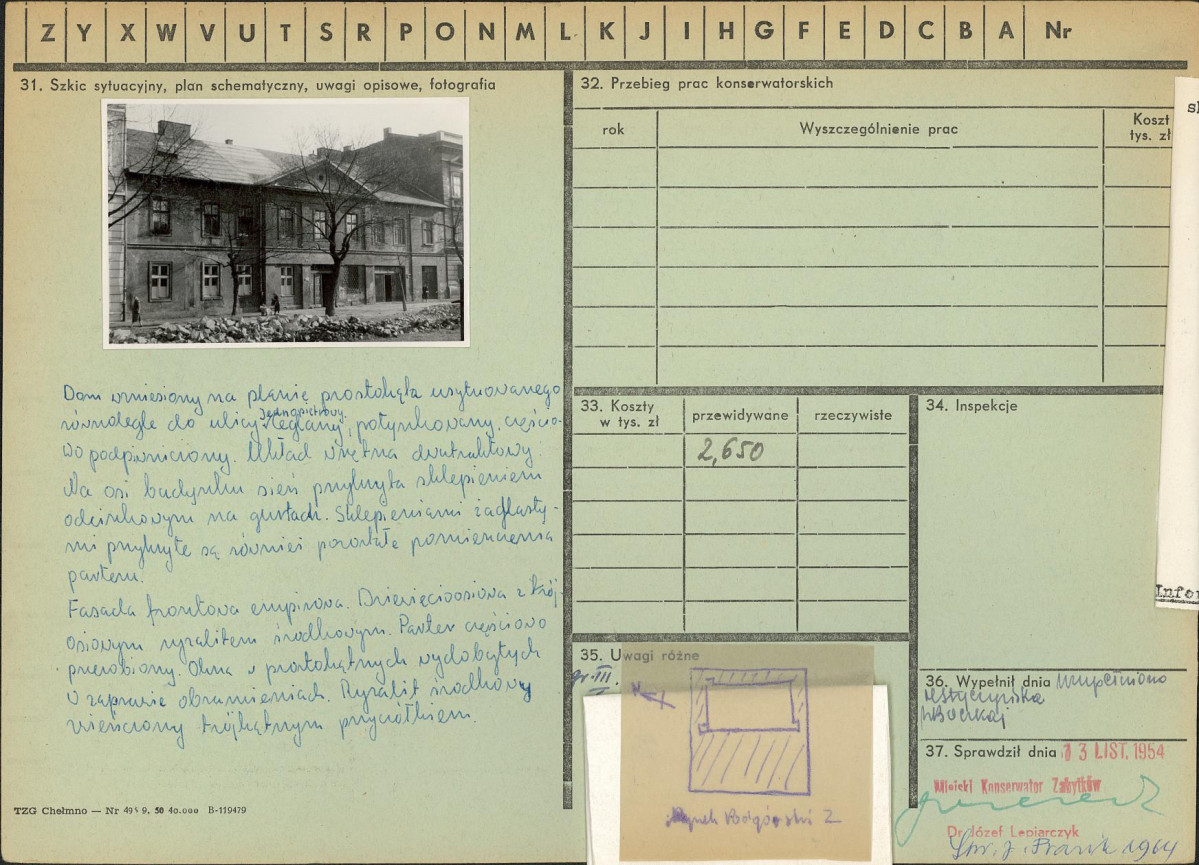 Z Y X W V U T S R P O N M L K J I H G F E D C B A Nr
31. Szkic sytuacyjny, plan schematyczny, uwagi opisowe, fotografia
Dom wzniesiony na planie prostokąta usytuowanego
równolegle do ulicy. Jednopiętrowy. Ceglany, potynkowany, częścio-
wo podpiwniczony. Układ wnętrza dwutraktowy.
Na osi budynku sień przykryta sklepieniem
odcinkowym na gurtach. Sklepieniami żaglasty-
mi przykryte są również pozostałe pomieszczenia
parteru.
Fasada frontowa empirowa. Dziewięcioosiowa z trój-
osiowym ryzalitem środkowym. Parter częściowo
przerobiony. Okna w prostokątnych wydobytych
w zaprawie obramieniach. Ryzalit środkowy
wieńczony trójkątnym przyczółkiem.
TZG Chełmno — Nr 495 9. 50 40.000 B-119479
32. Przebieg prac konserwatorskich
rok Wyszczególnienie prac Koszt
tys. zł
33. Koszty
w tys. zł przewidywane rzeczywiste
2,650
34. Inspekcje
35. Uwagi różne
gr. III.
Rynek Podgórski 2
36. Wypełnił dnia
37. Sprawdził dnia 13 LIST. 1954
Miejski Konserwator Zabytków
Dr Józef Lepiarczyk
1964
Infor